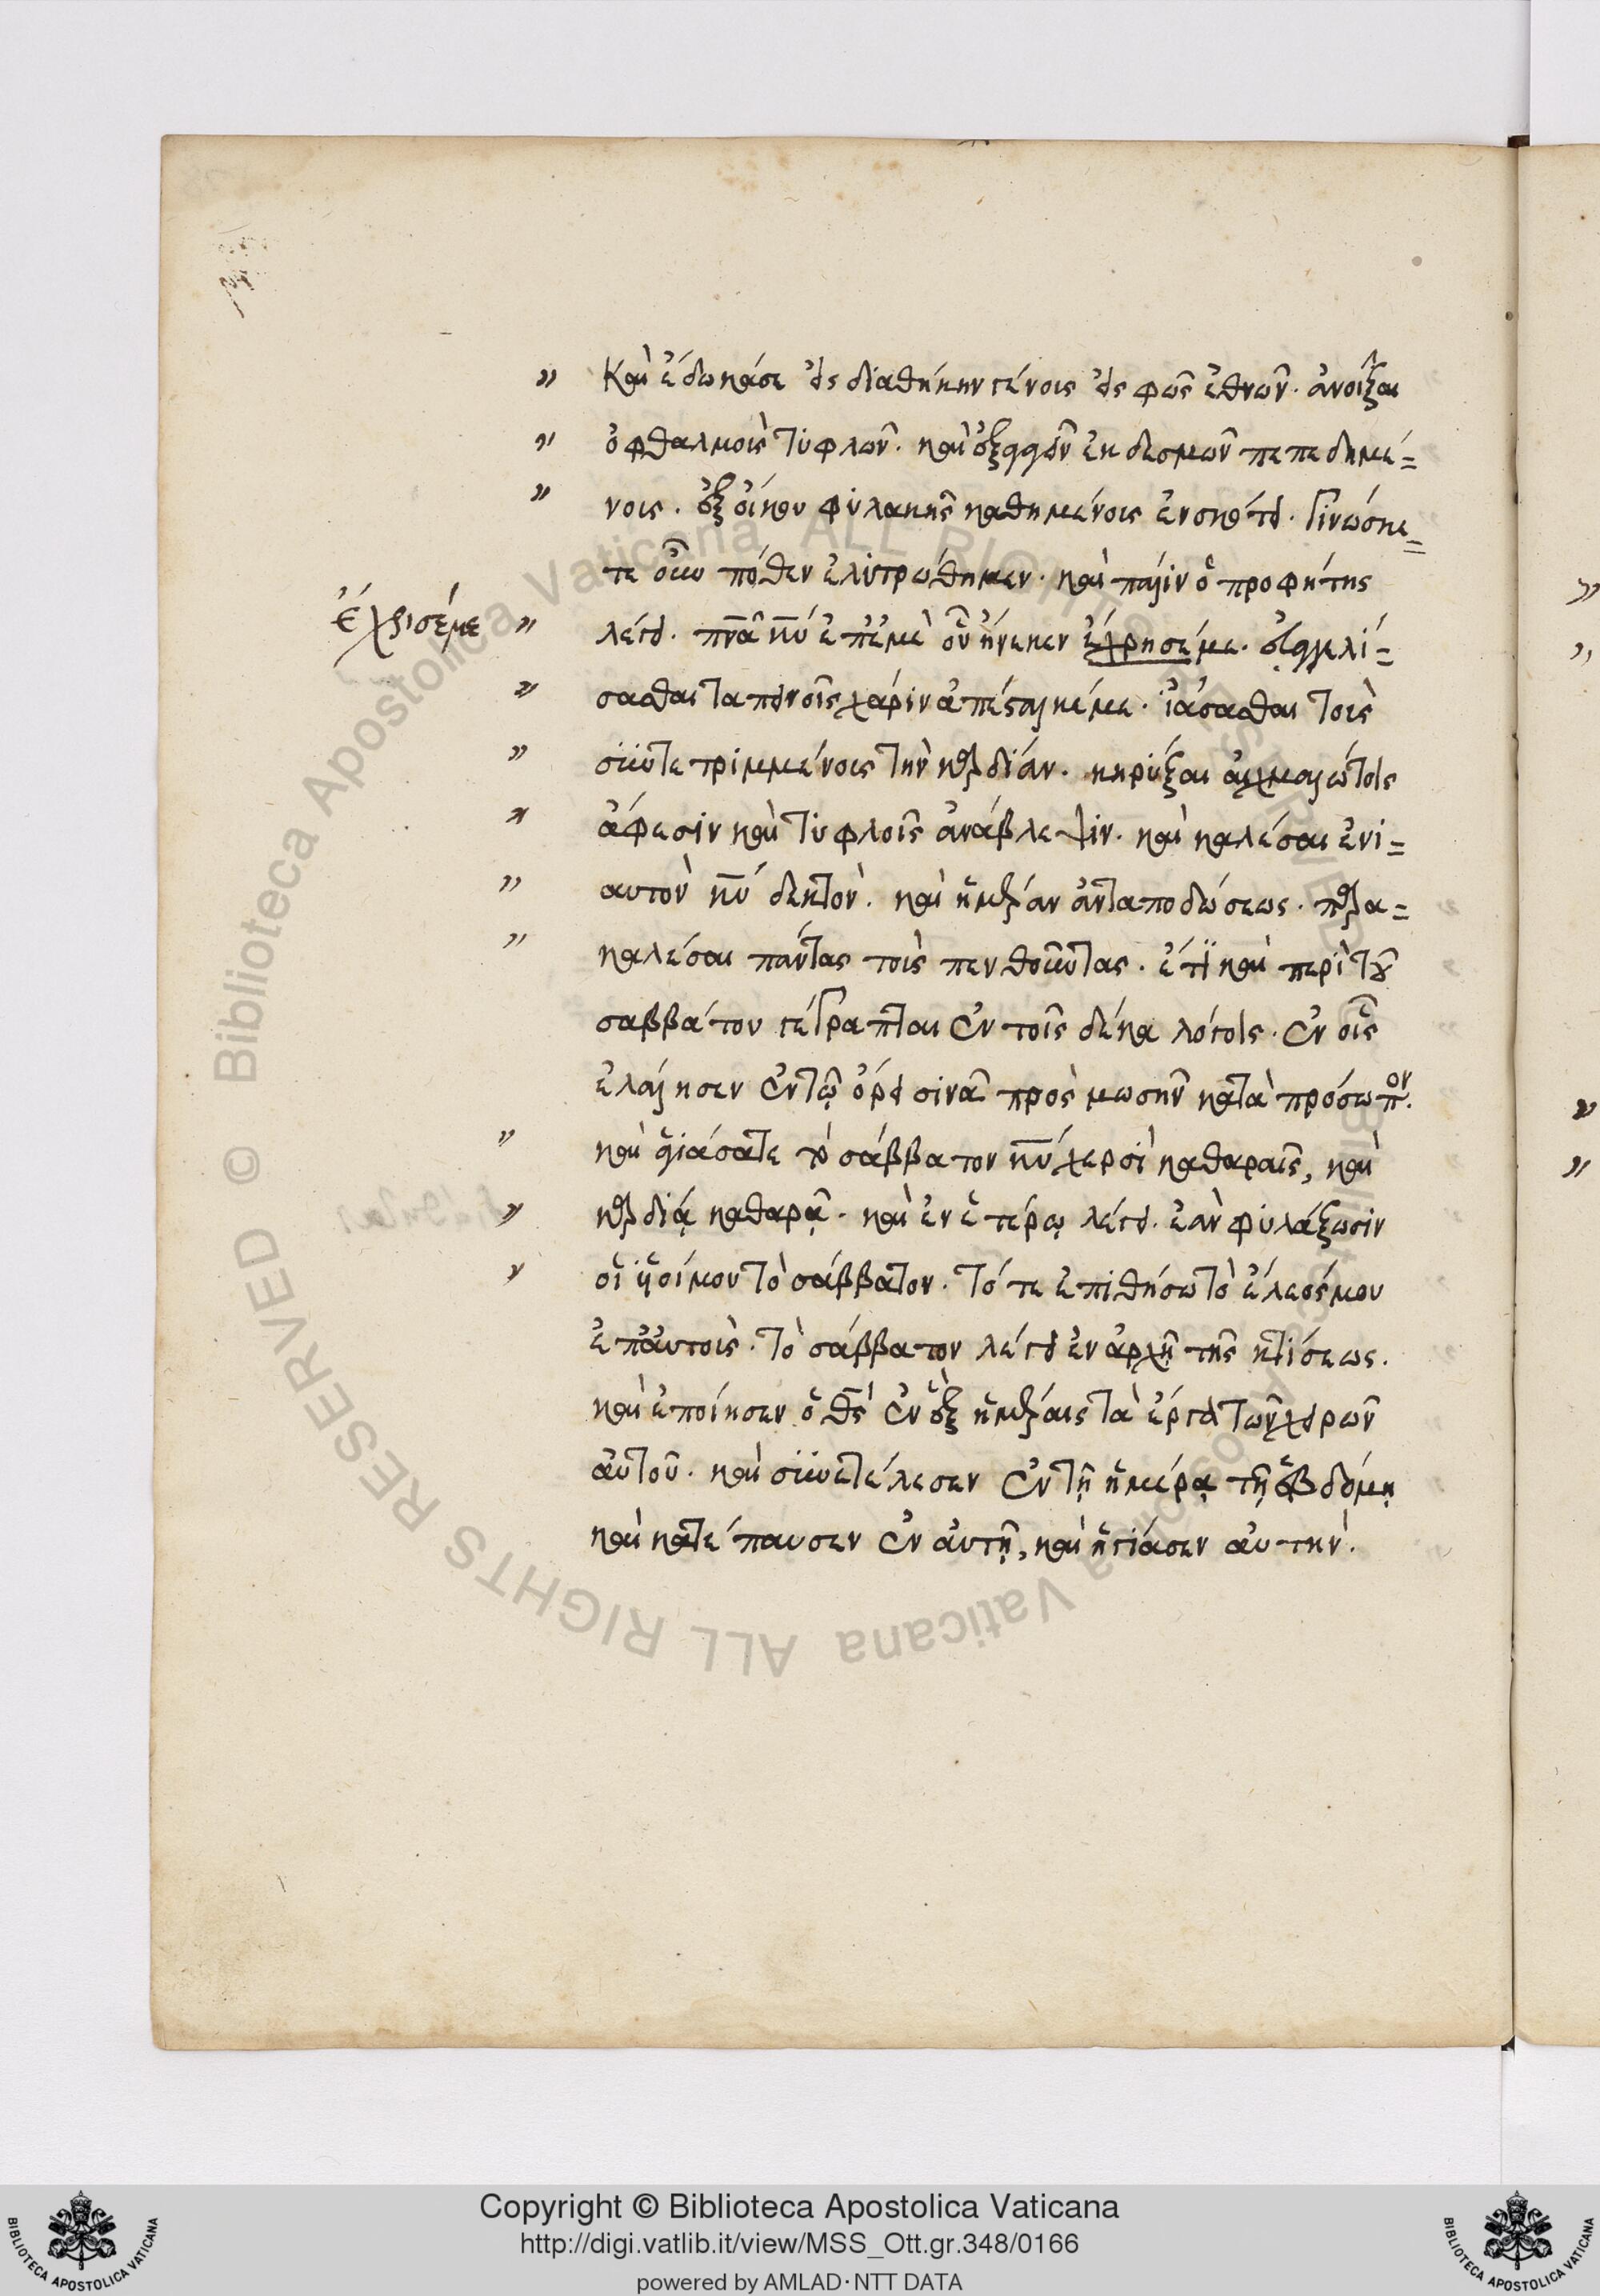 καὶ ἔδωκά σε εἰς διαθήκην γένους εἰς φῶς ἐθνῶν. ἀνοῖξαι
ὀφθαλμοὺς τυφλῶν. καὶ ἐξαγαγεῖν ἐκ δεσμῶν πεπεδημέ=
νους. ἐξ οἴκου φυλακῆς καθημένους ἐν σκότει. γινώσκε=
τε οὖν πόθεν ἐλυτρώθημεν. καὶ πάλιν ὁ προφήτης
ἔχρισέ με
λέγει. πνᾶ κῦ ἐπ' ἐμὲ οὗ ἥνεκεν ἔχρησέ με. εὐαγγελί=
σασθαι ταπεινοῖς χάριν ἀπέσταλκέ με. ἰάσασθαι τοὺς
συντετριμμένους τὴν καρδίαν. κηρύξαι αἰχμαλώτοις
ἄφεσιν καὶ τυφλοῖς ἀνάβλεψιν. καὶ καλέσαι ἐνι=
αυτὸν κῦ δεκτὸν. καὶ ἡμέραν ἀνταποδώσεως. παρα=
καλέσαι πάντας τοὺς πενθοῦντας. ἔτι καὶ περὶ τοῦ
σαββάτου γέγραπται ἐν τοῖς δέκα λόγοις. ἐν οἷς
ἐλάλησεν ἐν τῷ ὄρει σινᾶ πρὸς μωσῆν κατὰ πρόσωπον.
καὶ ἁγιάσατε τὸ σάββατον κῦ χερσὶ καθαραῖς, καὶ
καρδίᾳ καθαρᾷ. καὶ ἐν ἑτέρῳ λέγει. ἐὰν φυλάξωσιν
οἱ υἱοί μου τὸ σάββατον. τότε ἐπιθήσω τὸ ἔλεός μου
ἐπ' αὐτοὺς. τὸ σάββατον λέγει ἐν ἀρχῇ τῆς κτίσεως.
καὶ ἐποίησεν ὁ θς ἐν ἓξ ἡμέραις τὰ ἔργα τῶν χειρῶν
αὐτοῦ. καὶ συνετέλεσεν ἐν τῇ ἡμέρᾳ τῇ ἑβδόμῃ
καὶ κατέπαυσεν ἐν αὐτῇ, καὶ ἡγίασεν αὐτὴν.
© Biblioteca Apostolica Vaticana ALL RIGHTS RESERVED
© Biblioteca Apostolica Vaticana ALL RIGHTS RESERVED
Copyright © Biblioteca Apostolica Vaticana
http://digi.vatlib.it/view/MSS_Ott.gr.348/0166
powered by AMLAD·NTT DATA
BIBLIOTECA APOSTOLICA VATICANA
BIBLIOTECA APOSTOLICA VATICANA